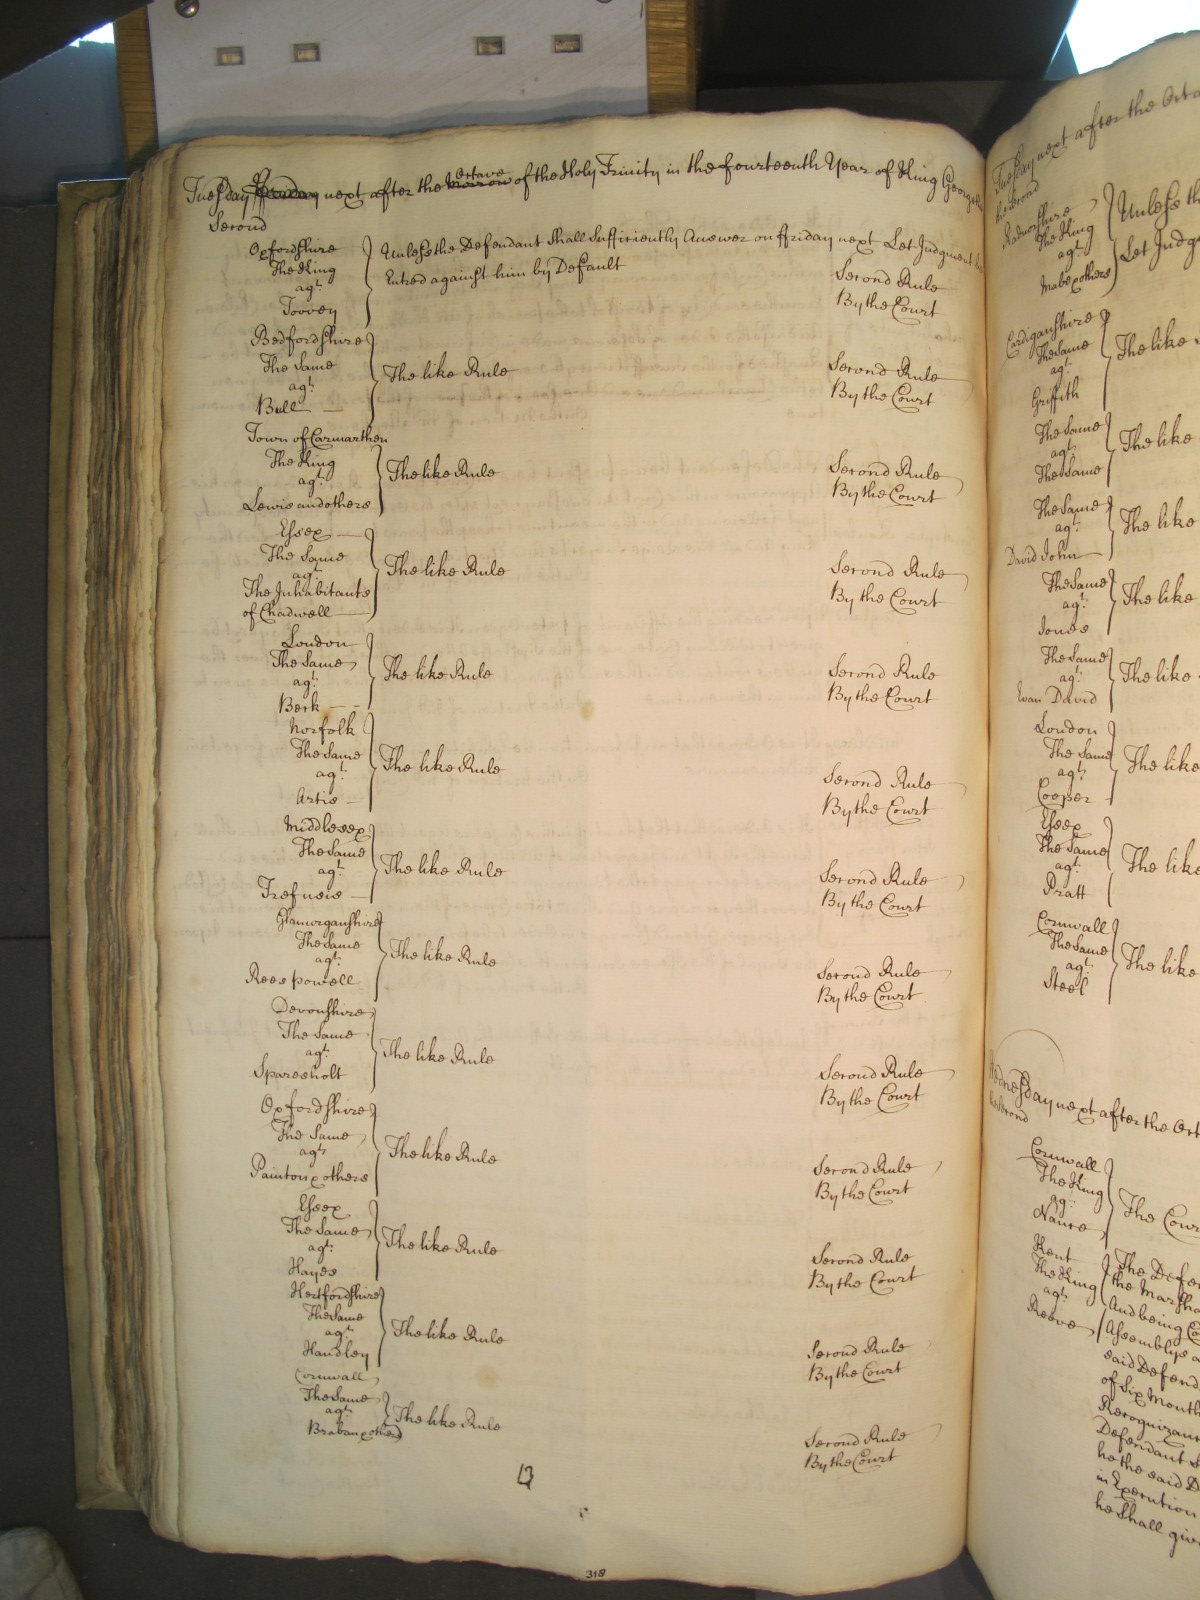 Tuesday Friday next after the Morrow Octave of the Holy Trinity in the fourteenth Year of King George the
Second
Oxfordshire
The King
agt.
Tovvey
Unless the Defendant Shall Sufficiently Answer on ffriday next Let Judgment be
Entred against him by Default
Second Rule
By the Court
Bedfordshire
The Same
agt.
Bull
The like Rule
Second Rule
By the Court
Town of Carmarthen
The King
agt.
Lewis and others
The like Rule
Second Rule
By the Court
Essex
The Same
agt.
The Inhabitants
of Chadwell
The like Rule
Second Rule
By the Court
London
The Same
agt.
Berk
The like Rule
Second Rule
By the Court
Norfolk
The Same
agt.
Artis
The like Rule
Second Rule
By the Court
Middlesex
The Same
agt.
Trefneis
The like Rule
Second Rule
By the Court
Glamorganshire
The Same
agt.
Rees Powell
The like Rule
Second Rule
By the Court
Devonshire
The Same
agt.
Sparesholt
The like Rule
Second Rule
By the Court
Oxfordshire
The Same
agt.
Painton & others
The like Rule
Second Rule
By the Court
Essex
The Same
agt.
Hayes
The like Rule
Second Rule
By the Court
Hertfordshire
The Same
agt.
Handley
The like Rule
Second Rule
By the Court
Cornwall
The Same
agt.
Braban & others
The like Rule
Second Rule
By the Court
13
318
Tuesday next after the Octa
the Second
Radnorshire
The King
agt.
Mabe & others
Unless th
Let Judg
Cardiganshire
The Same
agt.
Griffith
The like
The Same
agt.
The Same
The like
The Same
agt.
David John
The like
The Same
agt.
Jones
The like
The Same
agt.
Evan David
The like
London
The Same
agt.
Cooper
The like
Essex
The Same
agt.
Pratt
The like
Cornwall
The Same
agt.
Steel
The like
Wednesday next after the Oct
the Second
Cornwall
The King
agt.
Nance
The Cour
Kent
The King
agt.
Reeve
The Defen
the Marsha
And being C
Assemblys a
said Defend
of Six Month
Recognizanc
Defendant S
he the said D
in Execution
he Shall give